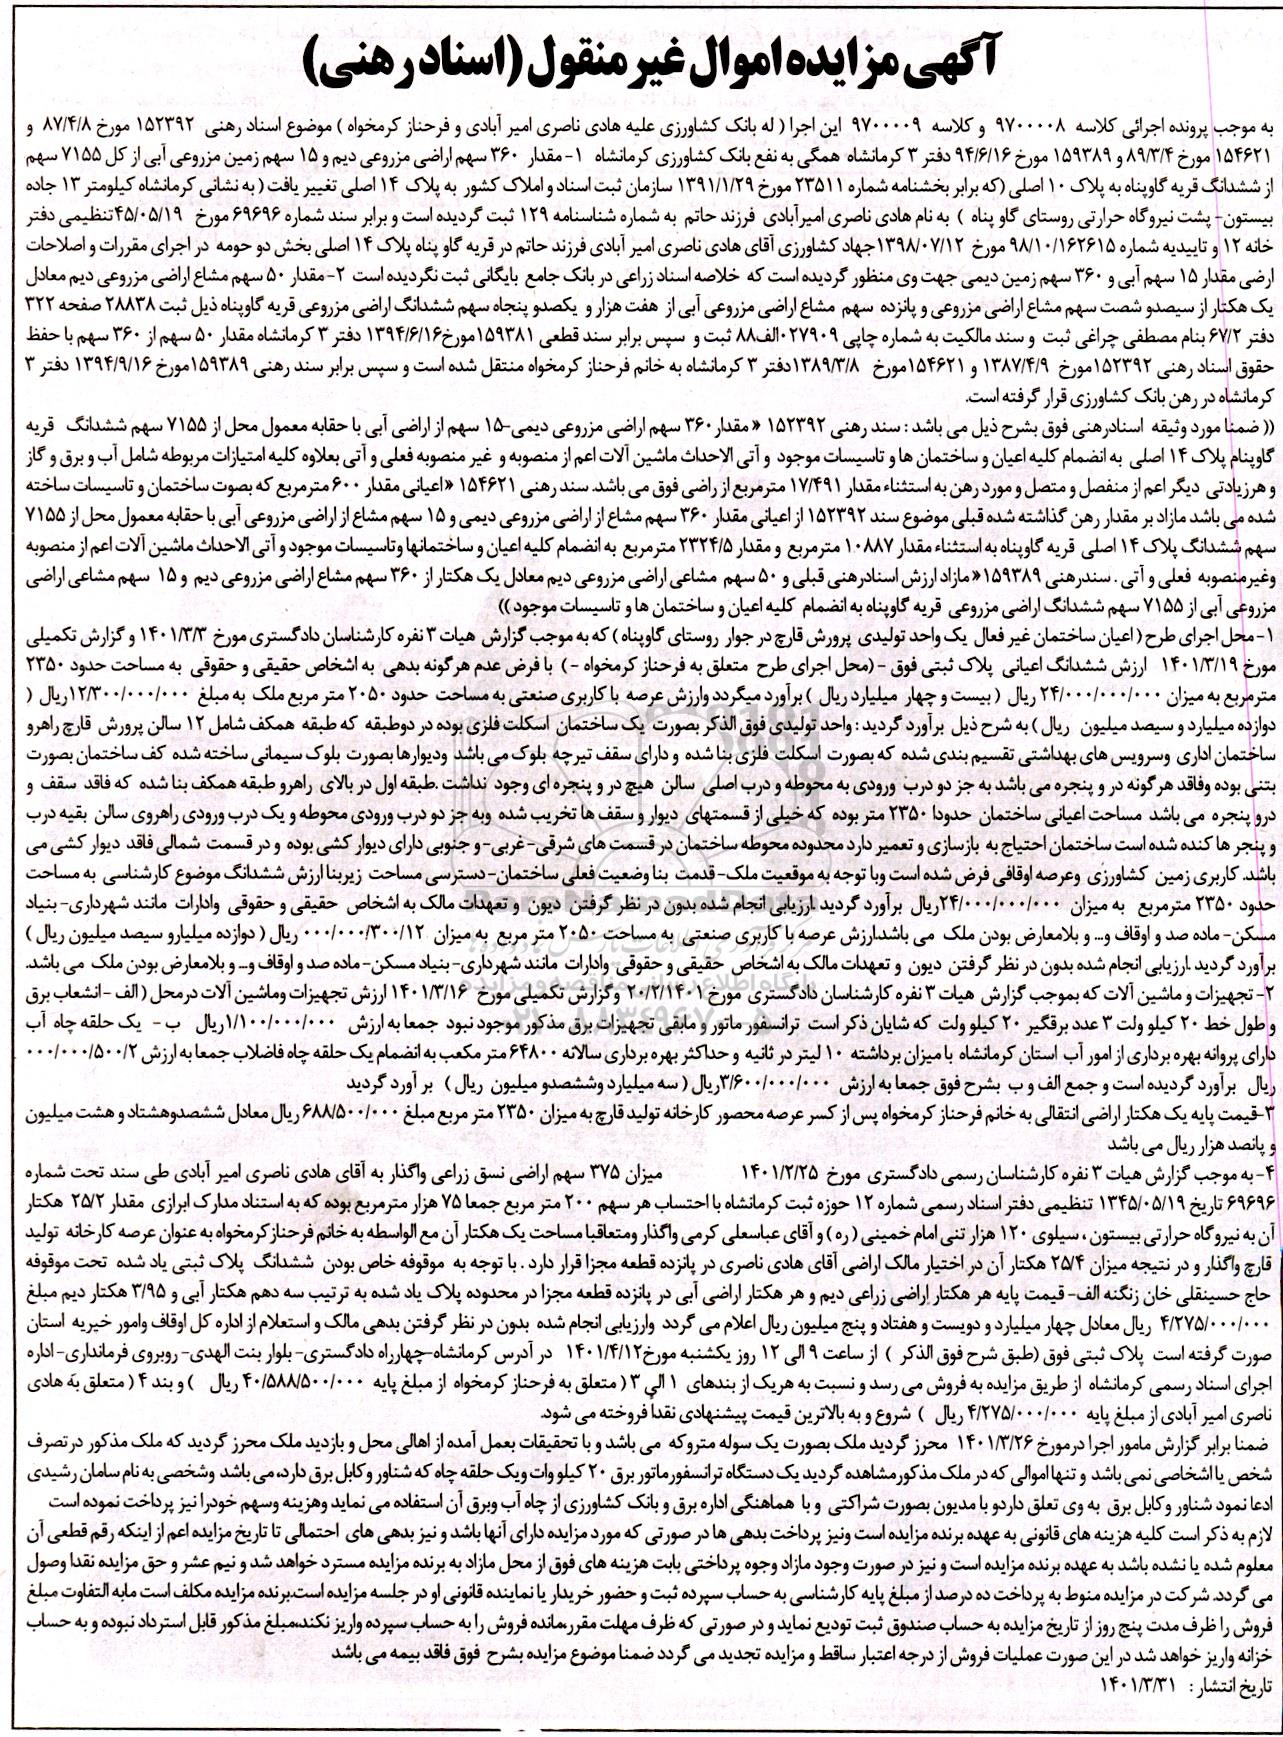 آگهی مزایده اموال غیر منقول (اسناد رهنی)
به موجب پرونده اجرائی کلاسه ۹۷۰۰۰۰۸ و کلاسه ۹۷۰۰۰۰۹ این اجرا ( له بانک کشاورزی علیه هادی ناصری امیر آبادی و فرحناز کرمخواه ) موضوع اسناد رهنی ۱۵۲۳۹۲ مورخ ۸۷/۴/۸ و
۱۵۴۶۲۱ مورخ ۸۹/۳/۴ و ۱۵۹۳۸۹ مورخ ۹۴/۶/۱۶ دفتر ۳ کرمانشاه همگی به نفع بانک کشاورزی کرمانشاه ۱- مقدار ۳۶۰ سهم اراضی مزروعی دیم و ۱۵ سهم زمین مزروعی آبی از کل ۷۱۵۵ سهم
از ششدانگ قریه گاوپناه به پلاک ۱۰ اصلی (که برابر بخشنامه شماره ۲۳۵۱۱ مورخ ۱۳۹۱/۱/۲۹ سازمان ثبت اسناد و املاک کشور به پلاک ۱۴ اصلی تغییر یافت ( به نشانی کرمانشاه کیلومتر ۱۳ جاده
بیستون- پشت نیروگاه حرارتی روستای گاو پناه ) به نام هادی ناصری امیرآبادی فرزند حاتم به شماره شناسنامه ۱۲۹ ثبت گردیده است و برابر سند شماره ۶۹۶۹۶ مورخ ۴۵/۰۵/۱۹تنظیمی دفتر
خانه ۱۲ و تاییدیه شماره ۹۸/۱۰/۱۶۲۶۱۵ مورخ ۱۳۹۸/۰۷/۱۲جهاد کشاورزی آقای هادی ناصری امیر آبادی فرزند حاتم در قریه گاو پناه پلاک ۱۴ اصلی بخش دو حومه در اجرای مقررات و اصلاحات
ارضی مقدار ۱۵ سهم آبی و ۳۶۰ سهم زمین دیمی جهت وی منظور گردیده است که خلاصه اسناد زراعی در بانک جامع بایگانی ثبت نگردیده است ۲- مقدار ۵۰ سهم مشاع اراضی مزروعی دیم معادل
یک هکتار از سیصدو شصت سهم مشاع اراضی مزروعی و پانزده سهم مشاع اراضی مزروعی آبی از هفت هزار و یکصدو پنجاه سهم ششدانگ اراضی مزروعی قریه گاوپناه ذیل ثبت ۲۸۸۳۸ صفحه ۳۲۲
دفتر ۶۷/۲ بنام مصطفی چراغی ثبت و سند مالکیت به شماره چاپی ۰۲۷۹۰۹الف۸۸ ثبت و سپس برابر سند قطعی ۱۵۹۳۸۱مورخ۱۳۹۴/۶/۱۶ دفتر ۳ کرمانشاه مقدار ۵۰ سهم از ۳۶۰ سهم با حفظ
حقوق اسناد رهنی ۱۵۲۳۹۲مورخ ۱۳۸۷/۴/۹ و ۱۵۴۶۲۱مورخ ۱۳۸۹/۳/۸دفتر ۳ کرمانشاه به خانم فرحناز کرمخواه منتقل شده است و سپس برابر سند رهنی ۱۵۹۳۸۹مورخ ۱۳۹۴/۹/۱۶ دفتر ۳
کرمانشاه در رهن بانک کشاورزی قرار گرفته است.
(( ضمنا مورد وثیقه اسنادرهنی فوق بشرح ذیل می باشد : سند رهنی ۱۵۲۳۹۲ « مقدار۳۶۰ سهم اراضی مزروعی دیمی-۱۵ سهم از اراضی آبی با حقابه معمول محل از ۷۱۵۵ سهم ششدانگ قریه
گاوپنام پلاک ۱۴ اصلی به انضمام کلیه اعیان و ساختمان ها و تاسیسات موجود و آتی الاحداث ماشین آلات اعم از منصوبه و غیر منصوبه فعلی و آتی بعلاوه کلیه امتیازات مربوطه شامل آب و برق و گاز
و هرزیادتی دیگر اعم از منفصل و متصل و مورد رهن به استثناء مقدار ۱۷/۴۹۱ مترمربع از راضی فوق می باشد. سند رهنی ۱۵۴۶۲۱ « اعیانی مقدار ۶۰۰ مترمربع که بصوت ساختمان و تاسیسات ساخته
شده می باشد مازاد بر مقدار رهن گذاشته شده قبلی موضوع سند ۱۵۲۳۹۲ از اعیانی مقدار ۳۶۰ سهم مشاع از اراضی مزروعی دیمی و ۱۵ سهم مشاع از اراضی مزروعی آبی با حقابه معمول محل از ۷۱۵۵
سهم ششدانگ پلاک ۱۴ اصلی قریه گاوپناه به استثناء مقدار ۱۰۸۸۷ مترمربع و مقدار ۲۳۲۴/۵ مترمربع به انضمام کلیه اعیان و ساختمانها وتاسیسات موجود و آتی الاحداث ماشین آلات اعم از منصوبه
وغیرمنصوبه فعلی و آتی . سندرهنی ۱۵۹۳۸۹« مازاد ارزش اسنادرهنی قبلی و ۵۰ سهم مشاعی اراضی مزروعی دیم معادل یک هکتار از ۳۶۰ سهم مشاع اراضی مزروعی دیم و ۱۵ سهم مشاعی اراضی
مزروعی آبی از ۷۱۵۵ سهم ششدانگ اراضی مزروعی قریه گاوپناه به انضمام کلیه اعیان و ساختمان ها و تاسیسات موجود ))
۱- محل اجرای طرح ( اعیان ساختمان غیر فعال یک واحد تولیدی پرورش قارچ در جوار روستای گاوپناه ) که به موجب گزارش هیات ۳ نفره کارشناسان دادگستری مورخ ۱۴۰۱/۳/۳ و گزارش تکمیلی
مورخ ۱۴۰۱/۳/۱۹ ارزش ششدانگ اعیانی پلاک ثبتی فوق -(محل اجرای طرح متعلق به فرحناز کرمخواه -) با فرض عدم هرگونه بدهی به اشخاص حقیقی و حقوقی به مساحت حدود ۲۳۵۰
مترمربع به میزان ۲۴/۰۰۰/۰۰۰/۰۰۰ ریال ( بیست و چهار میلیارد ریال ) برآورد میگردد وارزش عرصه با کاربری صنعتی به مساحت حدود ۲۰۵۰ متر مربع ملک به مبلغ ۱۲/۳۰۰/۰۰۰/۰۰۰ریال (
دوازده میلیارد و سیصد میلیون ریال ) به شرح ذیل برآورد گردید : واحد تولیدی فوق الذکر بصورت یک ساختمان اسکلت فلزی بوده در دوطبقه که طبقه همکف شامل ۱۲ سالن پرورش قارچ راهرو
ساختمان اداری وسرویس های بهداشتی تقسیم بندی شده که بصورت اسکلت فلزی بنا شده و دارای سقف تیرچه بلوک می باشد ودیوارها بصورت بلوک سیمانی ساخته شده کف ساختمان بصورت
بتنی بوده وفاقد هرگونه در و پنجره می باشد به جز دو درب ورودی به محوطه و درب اصلی سالن هیچ در و پنجره ای وجود نداشت .طبقه اول در بالای راهرو طبقه همکف بنا شده که فاقد سقف و
درو پنجره می باشد مساحت اعیانی ساختمان حدودا ۲۳۵۰ متر بوده که خیلی از قسمتهای دیوار و سقف ها تخریب شده وبه جز دو درب ورودی محوطه و یک درب ورودی راهروی سالن بقیه درب
و پنجر ها کنده شده است ساختمان احتیاج به بازسازی و تعمیر دارد محدوده محوطه ساختمان در قسمت های شرقی- غربی- و جنوبی دارای دیوار کشی بوده و در قسمت شمالی فاقد دیوار کشی می
باشد. کاربری زمین کشاورزی وعرصه اوقافی فرض شده است وبا توجه به موقعیت ملک- قدمت بنا وضعیت فعلی ساختمان- دسترسی مساحت زیربنا ارزش ششدانگ موضوع کارشناسی به مساحت
حدود ۲۳۵۰ مترمربع به میزان ۲۴/۰۰۰/۰۰۰/۰۰۰ریال برآورد گردید .ارزیابی انجام شده بدون در نظر گرفتن دیون و تعهدات مالک به اشخاص حقیقی و حقوقی وادارات مانند شهرداری- بنیاد
مسکن- ماده صد و اوقاف و... و بلامعارض بودن ملک می باشد.ارزش عرصه با کاربری صنعتی به مساحت ۲۰۵۰ متر مربع به میزان ۰۰۰/۰۰۰/۳۰۰/۱۲ ریال ( دوازده میلیارو سیصد میلیون ریال )
برآورد گردید .ارزیابی انجام شده بدون در نظر گرفتن دیون و تعهدات مالک به اشخاص حقیقی و حقوقی وادارات مانند شهرداری- بنیاد مسکن- ماده صد و اوقاف و... و بلامعارض بودن ملک می باشد.
۲- تجهیزات و ماشین آلات که بموجب گزارش هیات ۳ نفره کارشناسان دادگستری مورخ ۲۰/۲/۱۴۰۱ وگزارش تکمیلی مورخ ۱۴۰۱/۳/۱۶ ارزش تجهیزات وماشین آلات درمحل ( الف - انشعاب برق
و طول خط ۲۰ کیلو ولت ۳ عدد برقگیر ۲۰ کیلو ولت که شایان ذکر است ترانسفور ماتور و مابقی تجهیزات برق مذکور موجود نبود جمعا به ارزش ۱/۱۰۰/۰۰۰/۰۰۰ریال ب - یک حلقه چاه آب
دارای پروانه بهره برداری از امور آب استان کرمانشاه با میزان برداشته ۱۰ لیتر در ثانیه و حداکثر بهره برداری سالانه ۶۴۸۰۰ متر مکعب به انضمام یک حلقه چاه فاضلاب جمعا به ارزش ۰۰۰/۰۰۰/۵۰۰/۲
ریال برآورد گردیده است و جمع الف و ب بشرح فوق جمعا به ارزش ۳/۶۰۰/۰۰۰/۰۰۰ریال ( سه میلیارد وششصدو میلیون ریال ) بر آورد گردید
۳-قیمت پایه یک هکتار اراضی انتقالی به خانم فرحناز کرمخواه پس از کسر عرصه محصور کارخانه تولید قارچ به میزان ۲۳۵۰ متر مربع مبلغ ۶۸۸/۵۰۰/۰۰۰ ریال معادل ششصدوهشتاد و هشت میلیون
و پانصد هزار ریال می باشد
۴- به موجب گزارش هیات ۳ نفره کارشناسان رسمی دادگستری مورخ ۱۴۰۱/۲/۲۵ میزان ۳۷۵ سهم اراضی نسق زراعی واگذار به آقای هادی ناصری امیر آبادی طی سند تحت شماره
۶۹۶۹۶ تاریخ ۱۳۴۵/۰۵/۱۹ تنظیمی دفتر اسناد رسمی شماره ۱۲ حوزه ثبت کرمانشاه با احتساب هر سهم ۲۰۰ متر مربع جمعا ۷۵ هزار مترمربع بوده که به استناد مدارک ابرازی مقدار ۲۵/۲ هکتار
آن به نیروگاه حرارتی بیستون ، سیلوی ۱۲۰ هزار تنی امام خمینی (ره) و آقای عباسعلی کرمی واگذار ومتعاقبا مساحت یک هکتار آن مع الواسطه به خانم فرحنازکرمخواه به عنوان عرصه کارخانه تولید
قارچ واگذار و در نتیجه میزان ۲۵/۴ هکتار آن در اختیار مالک اراضی آقای هادی ناصری در پانزده قطعه مجزا قرار دارد . با توجه به موقوفه خاص بودن ششدانگ پلاک ثبتی یاد شده تحت موقوفه
حاج حسینقلی خان زنگنه الف- قیمت پایه هر هکتار اراضی زراعی دیم و هر هکتار اراضی آبی در پانزده قطعه مجزا در محدوده پلاک یاد شده به ترتیب سه دهم هکتار آبی و ۳/۹۵ هکتار دیم مبلغ
۴/۲۷۵/۰۰۰/۰۰۰ ریال معادل چهار میلیارد و دویست و هفتاد و پنج میلیون ریال اعلام می گردد وارزیابی انجام شده بدون در نظر گرفتن بدهی مالک و استعلام از اداره کل اوقاف وامور خیریه استان
صورت گرفته است پلاک ثبتی فوق (طبق شرح فوق الذکر ) از ساعت ۹ الی ۱۲ روز یکشنبه مورخ۱۴۰۱/۴/۱۲ در آدرس کرمانشاه-چهارراه دادگستری- بلوار بنت الهدی- روبروی فرمانداری- اداره
اجرای اسناد رسمی کرمانشاه از طریق مزایده به فروش می رسد و نسبت به هریک از بندهای ۱ الی ۳ ( متعلق به فرحناز کرمخواه از مبلغ پایه ۴۰/۵۸۸/۵۰۰/۰۰۰ ریال ) و بند ۴ ( متعلق به هادی
ناصری امیر آبادی از مبلغ پایه ۴/۲۷۵/۰۰۰/۰۰۰ ریال ) شروع و به بالاترین قیمت پیشنهادی نقداً فروخته می شود.
ضمنا برابر گزارش مامور اجرا درمورخ ۱۴۰۱/۳/۲۶ محرز گردید ملک بصورت یک سوله متروکه می باشد و با تحقیقات بعمل آمده از اهالی محل و بازدید ملک محرز گردید که ملک مذکور درتصرف
شخص یا اشخاصی نمی باشد و تنها اموالی که در ملک مذکورمشاهده گردید یک دستگاه ترانسفورماتور برق ۲۰ کیلو وات ویک حلقه چاه که شناور وکابل برق دارد، می باشد وشخصی به نام سامان رشیدی
ادعا نمود شناور وکابل برق به وی تعلق داردو با مدیون بصورت شراکتی و با هماهنگی اداره برق و بانک کشاورزی از چاه آب وبرق آن استفاده می نماید وهزینه وسهم خودرا نیز پرداخت نموده است
لازم به ذکر است کلیه هزینه های قانونی به عهده برنده مزایده است ونیز پرداخت بدهی ها در صورتی که مورد مزایده دارای آنها باشد و نیز بدهی های احتمالی تا تاریخ مزایده اعم از اینکه رقم قطعی آن
معلوم شده یا نشده باشد به عهده برنده مزایده است و نیز در صورت وجود مازاد وجوه پرداختی بابت هزینه های فوق از محل مازاد به برنده مزایده مسترد خواهد شد و نیم عشر و حق مزایده نقدا وصول
می گردد. شرکت در مزایده منوط به پرداخت ده درصد از مبلغ پایه کارشناسی به حساب سپرده ثبت و حضور خریدار یا نماینده قانونی او در جلسه مزایده است.برنده مزایده مکلف است مابه التفاوت مبلغ
فروش را ظرف مدت پنج روز از تاریخ مزایده به حساب صندوق ثبت تودیع نماید و در صورتی که ظرف مهلت مقرر،مانده فروش را به حساب سپرده واریز نکند،مبلغ مذکور قابل استرداد نبوده و به حساب
خزانه واریز خواهد شد در این صورت عملیات فروش از درجه اعتبار ساقط و مزایده تجدید می گردد ضمنا موضوع مزایده بشرح فوق فاقد بیمه می باشد
تاریخ انتشار : ۱۴۰۱/۳/۳۱